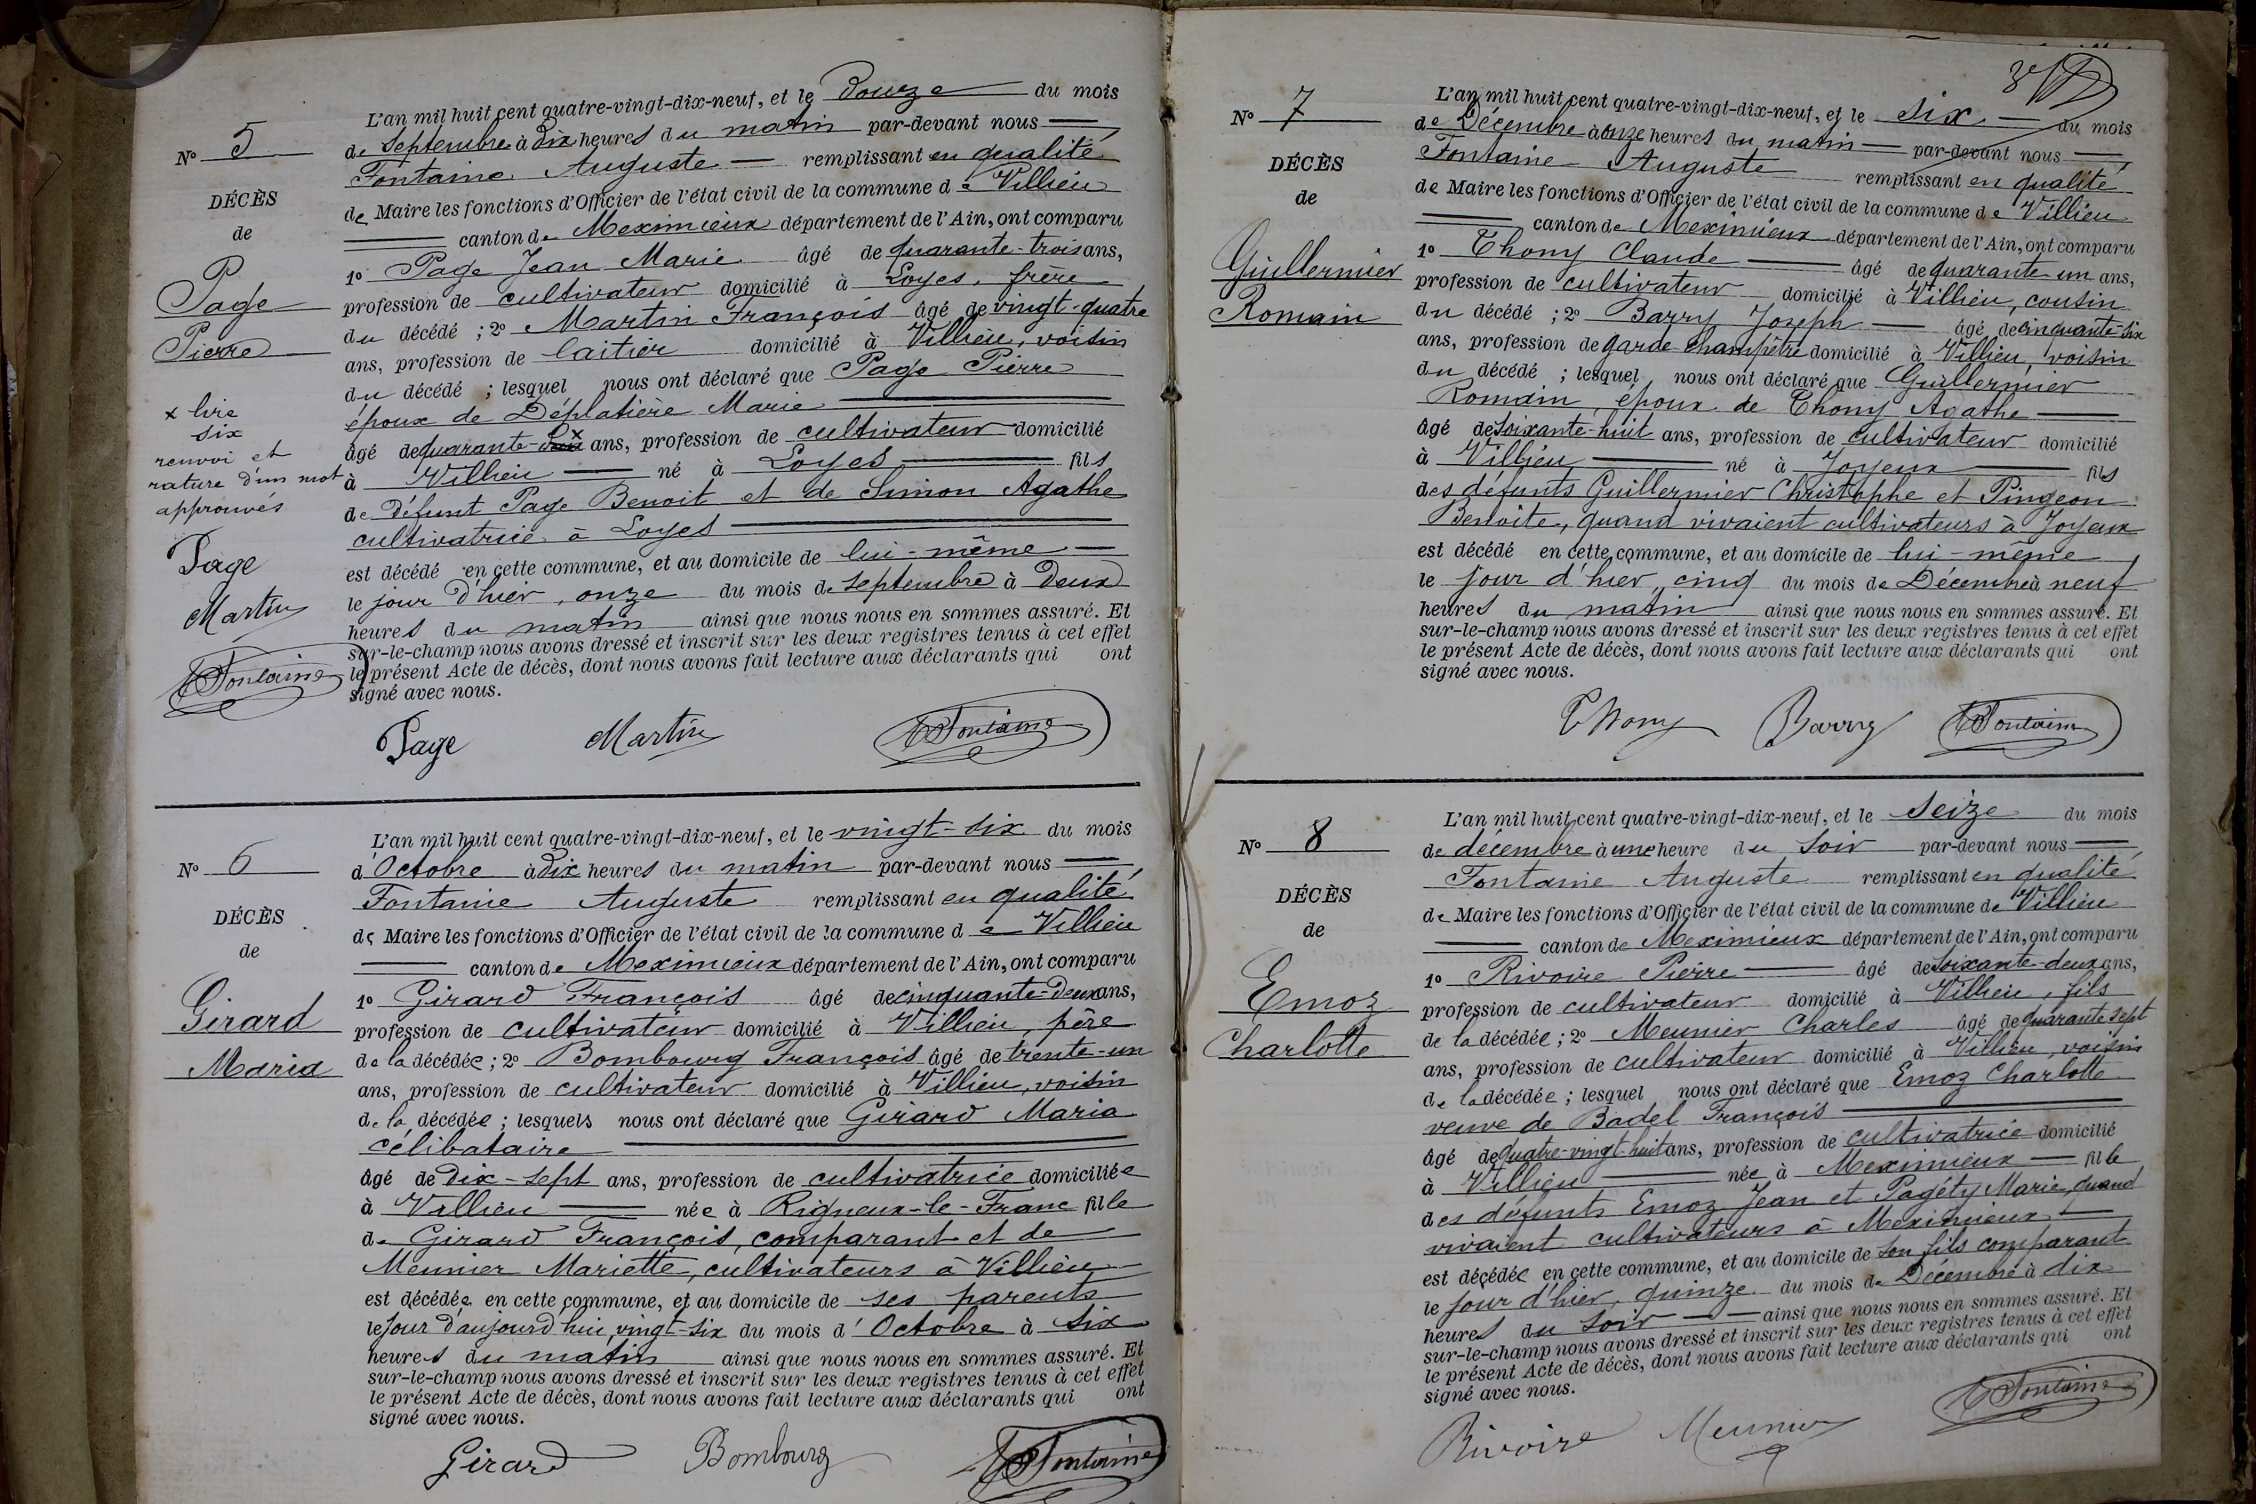 N° 5
DÉCÈS
de
Page
Pierre
x lire
six
renvoi et
rature d'un mot
approuvés
Page
Martin
Fontaine
L'an mil huit cent quatre-vingt-dix-neuf, et le Douze du mois
de Septembre à Dix heures du matin par-devant nous
Fontaine Auguste remplissant en qualité
de Maire les fonctions d'Officier de l'état civil de la commune de Villieu
canton de Meximieux département de l'Ain, ont comparu
1° Page Jean Marie âgé de quarante-trois ans,
profession de cultivateur domicilié à Loyes, frère
du décédé ; 2° Martin François âgé de vingt-quatre
ans, profession de laitier domicilié à Villieu, voisin
du décédé ; lesquel nous ont déclaré que Page Pierre
époux de Déplatière Marie
âgé de quarante- x ans, profession de cultivateur domicilié
à Villieu né à Loyes fils
de Défunt Page Benoit et de Simon Agathe
cultivatrice à Loyes
est décédé en cette commune, et au domicile de lui-même
le jour d'hier, onze du mois de septembre à Deux
heures du matin ainsi que nous nous en sommes assuré. Et
sur-le-champ nous avons dressé et inscrit sur les deux registres tenus à cet effet
le présent Acte de décès, dont nous avons fait lecture aux déclarants qui ont
signé avec nous.
Page Martin Fontaine
N° 6
DÉCÈS
de
Girard
Maria
L'an mil huit cent quatre-vingt-dix-neuf, et le vingt-six du mois
d'Octobre à Dix heures du matin par-devant nous
Fontaine Auguste remplissant en qualité
de Maire les fonctions d'Officier de l'état civil de la commune de Villieu
canton de Meximieux département de l'Ain, ont comparu
1° Girard François âgé de cinquante-Deux ans,
profession de cultivateur domicilié à Villieu, père
de la décédée ; 2° Bombourg François âgé de trente-un
ans, profession de cultivateur domicilié à Villieu, voisin
de la décédée ; lesquels nous ont déclaré que Girard Maria
célibataire
âgé de Dix-sept ans, profession de cultivatrice domiciliée
à Villieu née à Rigneux-le-Franc fille
de Girard François, comparant et de
Meunier Mariette, cultivateurs à Villieu
est décédée en cette commune, et au domicile de ses parents
le jour d'aujourd'hui vingt-six du mois d'Octobre à six
heures du matin ainsi que nous nous en sommes assuré. Et
sur-le-champ nous avons dressé et inscrit sur les deux registres tenus à cet effet
le présent Acte de décès, dont nous avons fait lecture aux déclarants qui ont
signé avec nous.
Girard Bombourg Fontaine
N° 7
DÉCÈS
de
Guillermier
Romain
L'an mil huit cent quatre-vingt-dix-neuf, et le six du mois
de Décembre à onze heures du matin par-devant nous
Fontaine Auguste remplissant en qualité
de Maire les fonctions d'Officier de l'état civil de la commune de Villieu
canton de Meximieux département de l'Ain, ont comparu
1° Thomy Claude âgé de quarante un ans,
profession de cultivateur domicilié à Villieu, cousin
du décédé ; 2° Barry Joseph âgé de cinquante-six
ans, profession de garde champêtre domicilié à Villieu, voisin
du décédé ; lesquel nous ont déclaré que Guillermier
Romain, époux de Thomy Agathe
âgé de soixante-huit ans, profession de cultivateur domicilié
à Villieu né à Joyeux fils
des défunts Guillermier Christophe et Pingeon
Benoite, quand vivaient cultivateurs à Joyeux
est décédé en cette commune, et au domicile de lui-même
le jour d'hier, cinq du mois de Décembre à neuf
heures du matin ainsi que nous nous en sommes assuré. Et
sur-le-champ nous avons dressé et inscrit sur les deux registres tenus à cet effet
le présent Acte de décès, dont nous avons fait lecture aux déclarants qui ont
signé avec nous.
Thomy Barry Fontaine
N° 8
DÉCÈS
de
Emoz
Charlotte
L'an mil huit cent quatre-vingt-dix-neuf, et le seize du mois
de décembre à une heure du soir par-devant nous
Fontaine Auguste remplissant en qualité
de Maire les fonctions d'Officier de l'état civil de la commune de Villieu
canton de Meximieux département de l'Ain, ont comparu
1° Rivoire Pierre âgé de soixante-deux ans,
profession de cultivateur domicilié à Villieu, fils
de la décédée ; 2° Meunier Charles âgé de quarante sept
ans, profession de cultivateur domicilié à Villieu, voisin
de la décédée ; lesquel nous ont déclaré que Emoz Charlotte
veuve de Badel François
âgé de quatre-vingt-huit ans, profession de cultivatrice domicilié
à Villieu née à Meximieux fille
des défunts Emoz Jean et Pagéty Marie, quand
vivaient cultivateurs à Meximieux
est décédée en cette commune, et au domicile de son fils comparant
le jour d'hier, quinze du mois de Décembre à dix
heures du soir ainsi que nous nous en sommes assuré. Et
sur-le-champ nous avons dressé et inscrit sur les deux registres tenus à cet effet
le présent Acte de décès, dont nous avons fait lecture aux déclarants qui ont
signé avec nous.
Rivoire Meunier Fontaine